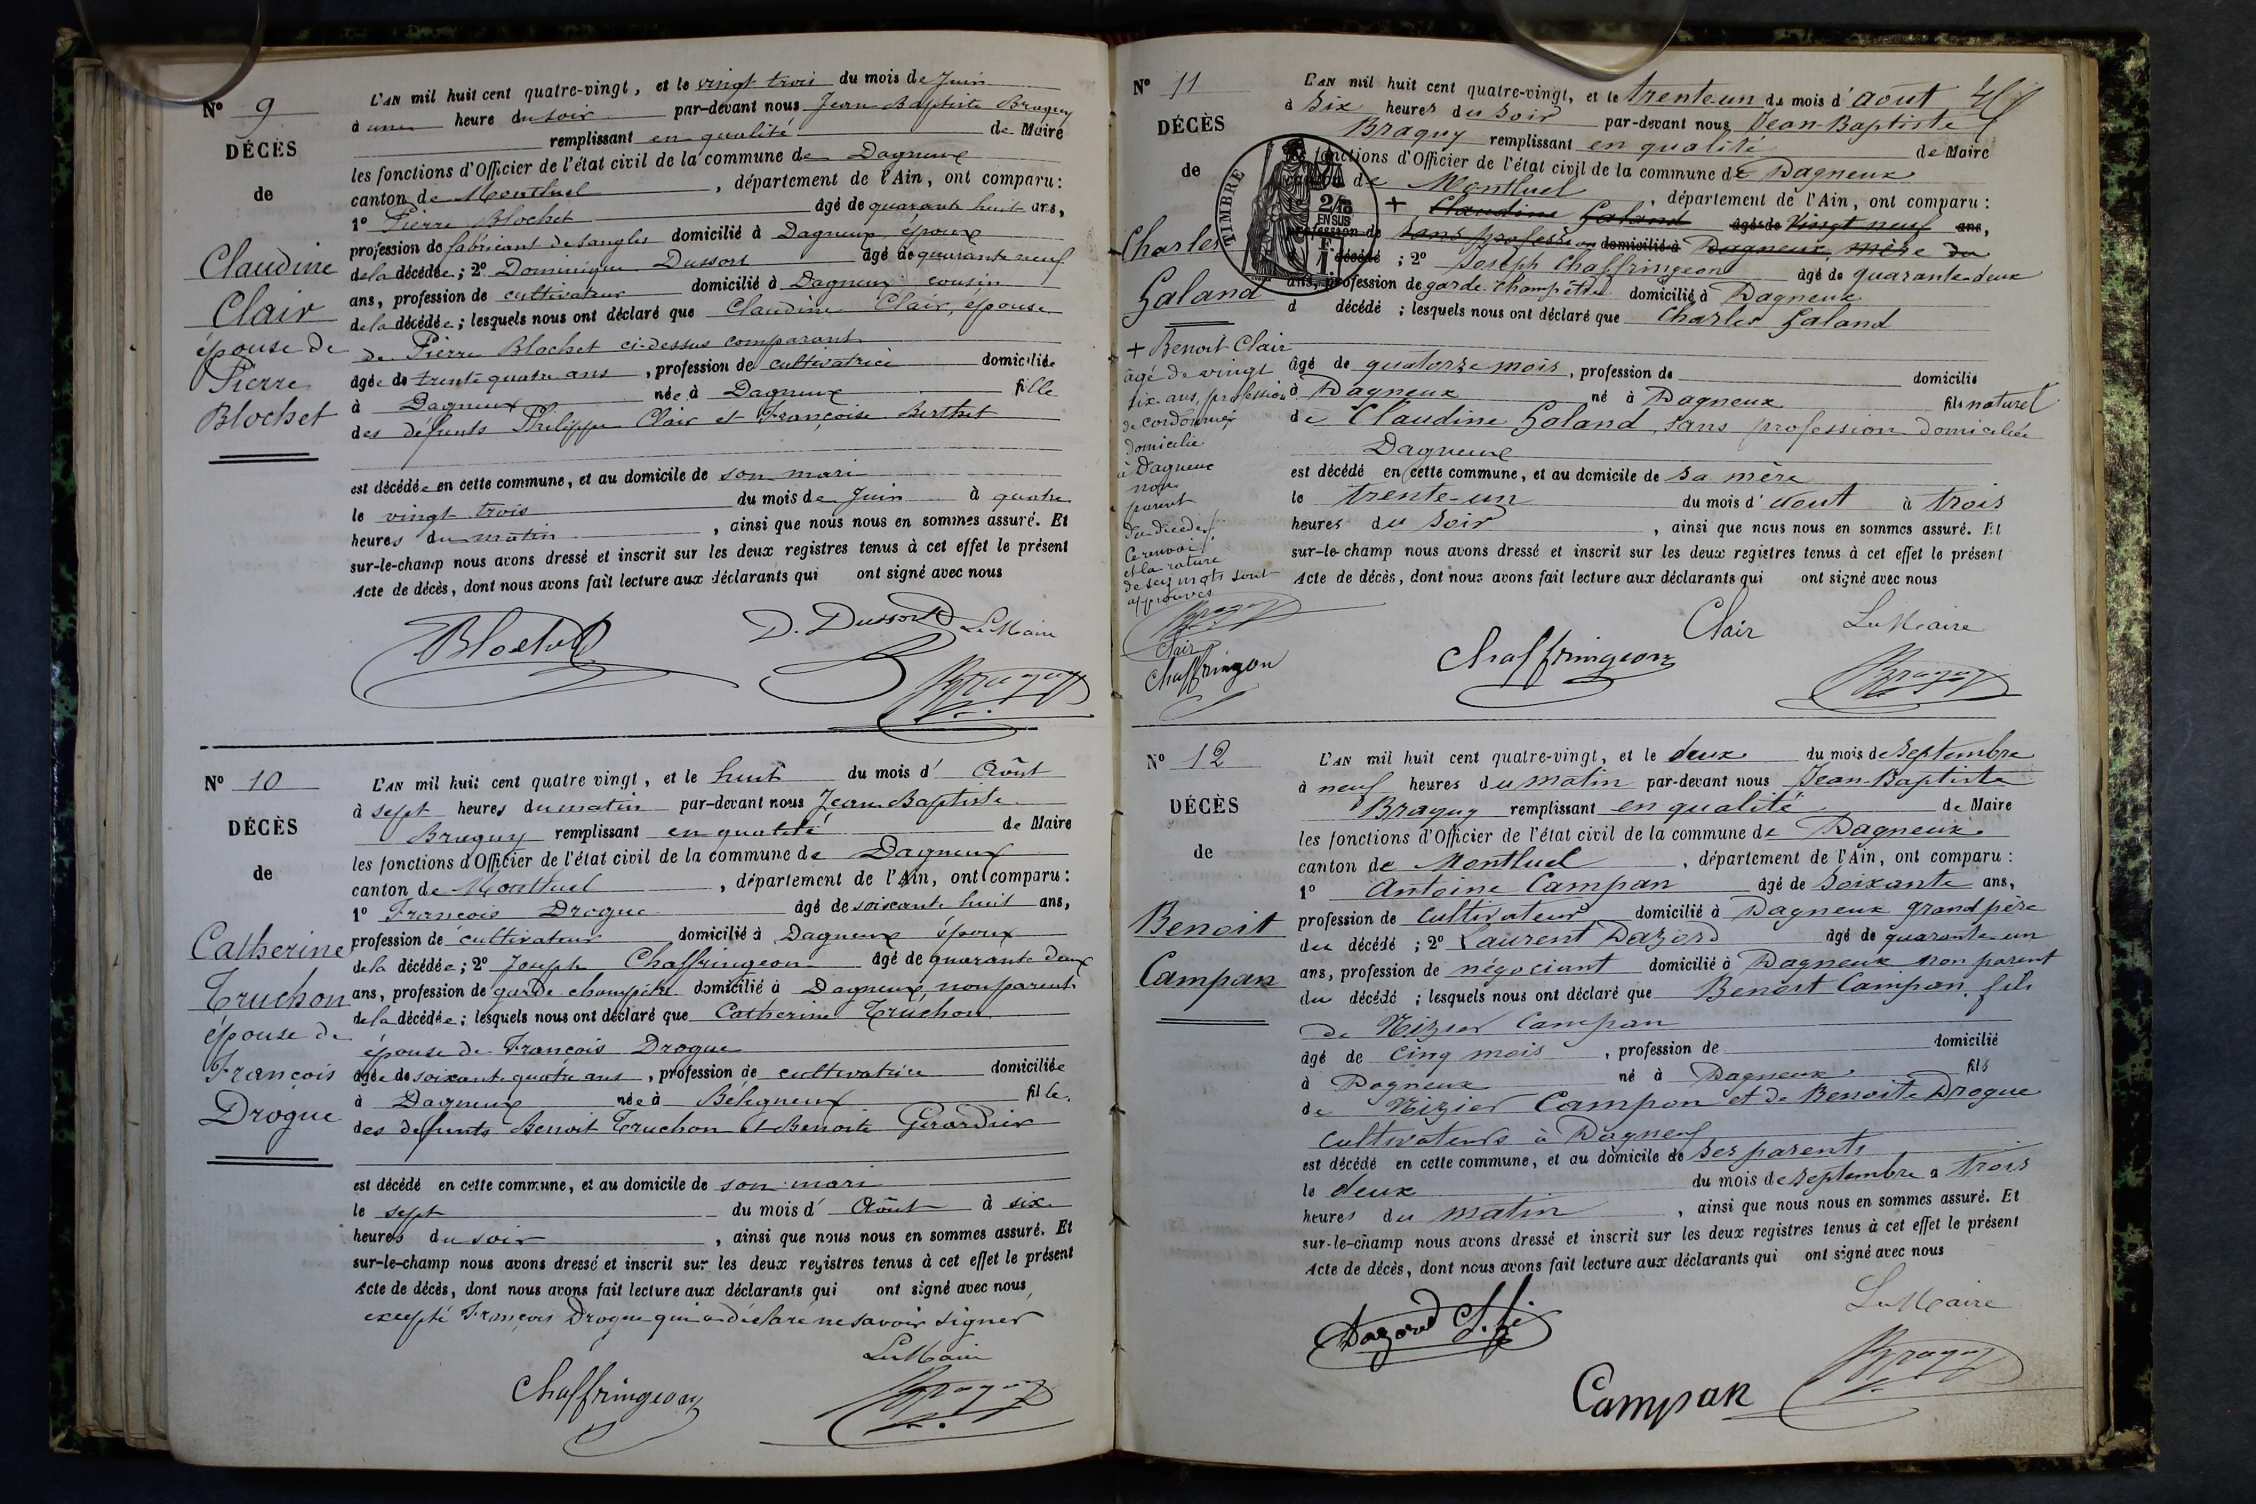 Nº 9
DÉCÈS
de
Claudine
Clair
épouse de
Pierre
Blochet
L'AN mil huit cent quatre-vingt, et le vingt trois du mois de Juin
à une heure du soir par-devant nous Jean Baptiste Braguy
remplissant en qualité de Maire
les fonctions d'Officier de l'état civil de la commune de Dagneux
canton de Montluel, département de l'Ain, ont comparu:
1º Pierre Blochet âgé de quarante huit ans,
profession de fabricant de sangles domicilié à Dagneux, époux
de la décédée; 2º Dominique Dussort âgé de quarante neuf
ans, profession de cultivateur domicilié à Dagneux cousin
de la décédée; lesquels nous ont déclaré que Claudine Clair, épouse
de Pierre Blochet ci-dessus comparant
âgée de trente quatre ans, profession de cultivatrice domiciliée
à Dagneux née à Dagneux fille
des défunts Philippe Clair et Françoise Berthet
est décédée en cette commune, et au domicile de son mari
le vingt trois du mois de Juin à quatre
heures du matin, ainsi que nous nous en sommes assuré. Et
sur-le-champ nous avons dressé et inscrit sur les deux registres tenus à cet effet le présent
Acte de décès, dont nous avons fait lecture aux déclarants qui ont signé avec nous
Blochet D. Dussort Le Maire
Braguy
Nº 10
DÉCÈS
de
Catherine
Truchon
épouse de
François
Drogue
L'AN mil huit cent quatre vingt, et le huit du mois d' Août
à sept heures du matin par-devant nous Jean Baptiste
Braguy remplissant en qualité de Maire
les fonctions d'Officier de l'état civil de la commune de Dagneux
canton de Montluel, département de l'Ain, ont comparu:
1º François Drogue âgé de soixante huit ans,
profession de cultivateur domicilié à Dagneux époux
de la décédée; 2º Joseph Chaffringeon âgé de quarante deux
ans, profession de garde champêtre domicilié à Dagneux, non parent
de la décédée; lesquels nous ont déclaré que Catherine Truchon
épouse de François Drogue
âgée de soixante quatre ans, profession de cultivatrice domiciliée
à Dagneux née à Béligneux fille
des défunts Benoit Truchon et Benoite Girardier
est décédé en cette commune, et au domicile de son mari
le sept du mois d' Août à six
heures du soir, ainsi que nous nous en sommes assuré. Et
sur-le-champ nous avons dressé et inscrit sur les deux registres tenus à cet effet le présent
Acte de décès, dont nous avons fait lecture aux déclarants qui ont signé avec nous,
excepté François Drogue qui a déclaré ne savoir signer
Le Maire
Chaffringeon Braguy
Nº 11
DÉCÈS
de
Charles
Galand
+ Benoit Clair
âgé de vingt
six ans, profession
de cordonnier
domicilié
à Dagneux
non
parent
du décédé
Ce renvoi
et la rature
de seize mots sont
approuvés
Braguy
Clair
Chaffringeon
TIMBRE
2/10
EN SUS
L'AN mil huit cent quatre-vingt, et le trente-un du mois d' août
à six heures du soir par-devant nous Jean-Baptiste
Braguy remplissant en qualité de Maire
les fonctions d'Officier de l'état civil de la commune de Dagneux
canton de Montluel, département de l'Ain, ont comparu:
+ Claudine Galand âgé de vingt neuf ans,
profession de sans profession domicilié à Dagneux, mère du
décédé; 2º Joseph Chaffringeon âgé de quarante-deux
ans, profession de garde-champêtre domicilié à Dagneux
d décédé; lesquels nous ont déclaré que Charles Galand
âgé de quatorze mois, profession de domicilié
à Dagneux né à Dagneux fils naturel
de Claudine Galand, sans profession domiciliée
Dagneux
est décédé en cette commune, et au domicile de sa mère
le trente-un du mois d' août à trois
heures du soir, ainsi que nous nous en sommes assuré. Et
sur-le-champ nous avons dressé et inscrit sur les deux registres tenus à cet effet le présent
Acte de décès, dont nous avons fait lecture aux déclarants qui ont signé avec nous
Chaffringeon Clair Le Maire
Braguy
Nº 12
DÉCÈS
de
Benoit
Campan
L'AN mil huit cent quatre-vingt, et le deux du mois de septembre
à neuf heures du matin par-devant nous Jean-Baptiste
Braguy remplissant en qualité de Maire
les fonctions d'Officier de l'état civil de la commune de Dagneux
canton de Montluel, département de l'Ain, ont comparu:
1º Antoine Campan âgé de soixante ans,
profession de cultivateur domicilié à Dagneux grand père
du décédé; 2º Laurent Dazord âgé de quarante-un
ans, profession de négociant domicilié à Dagneux non parent
du décédé; lesquels nous ont déclaré que Benoit Campan, fils
de Nizier Campan
âgé de cinq mois, profession de domicilié
à Dagneux né à Dagneux fils
de Nizier Campan et de Benoite Drogue
cultivateurs à Dagneux
est décédé en cette commune, et au domicile de ses parents
le deux du mois de septembre à trois
heures du matin, ainsi que nous nous en sommes assuré. Et
sur-le-champ nous avons dressé et inscrit sur les deux registres tenus à cet effet le présent
Acte de décès, dont nous avons fait lecture aux déclarants qui ont signé avec nous
Dazord Le Maire
Campan Braguy